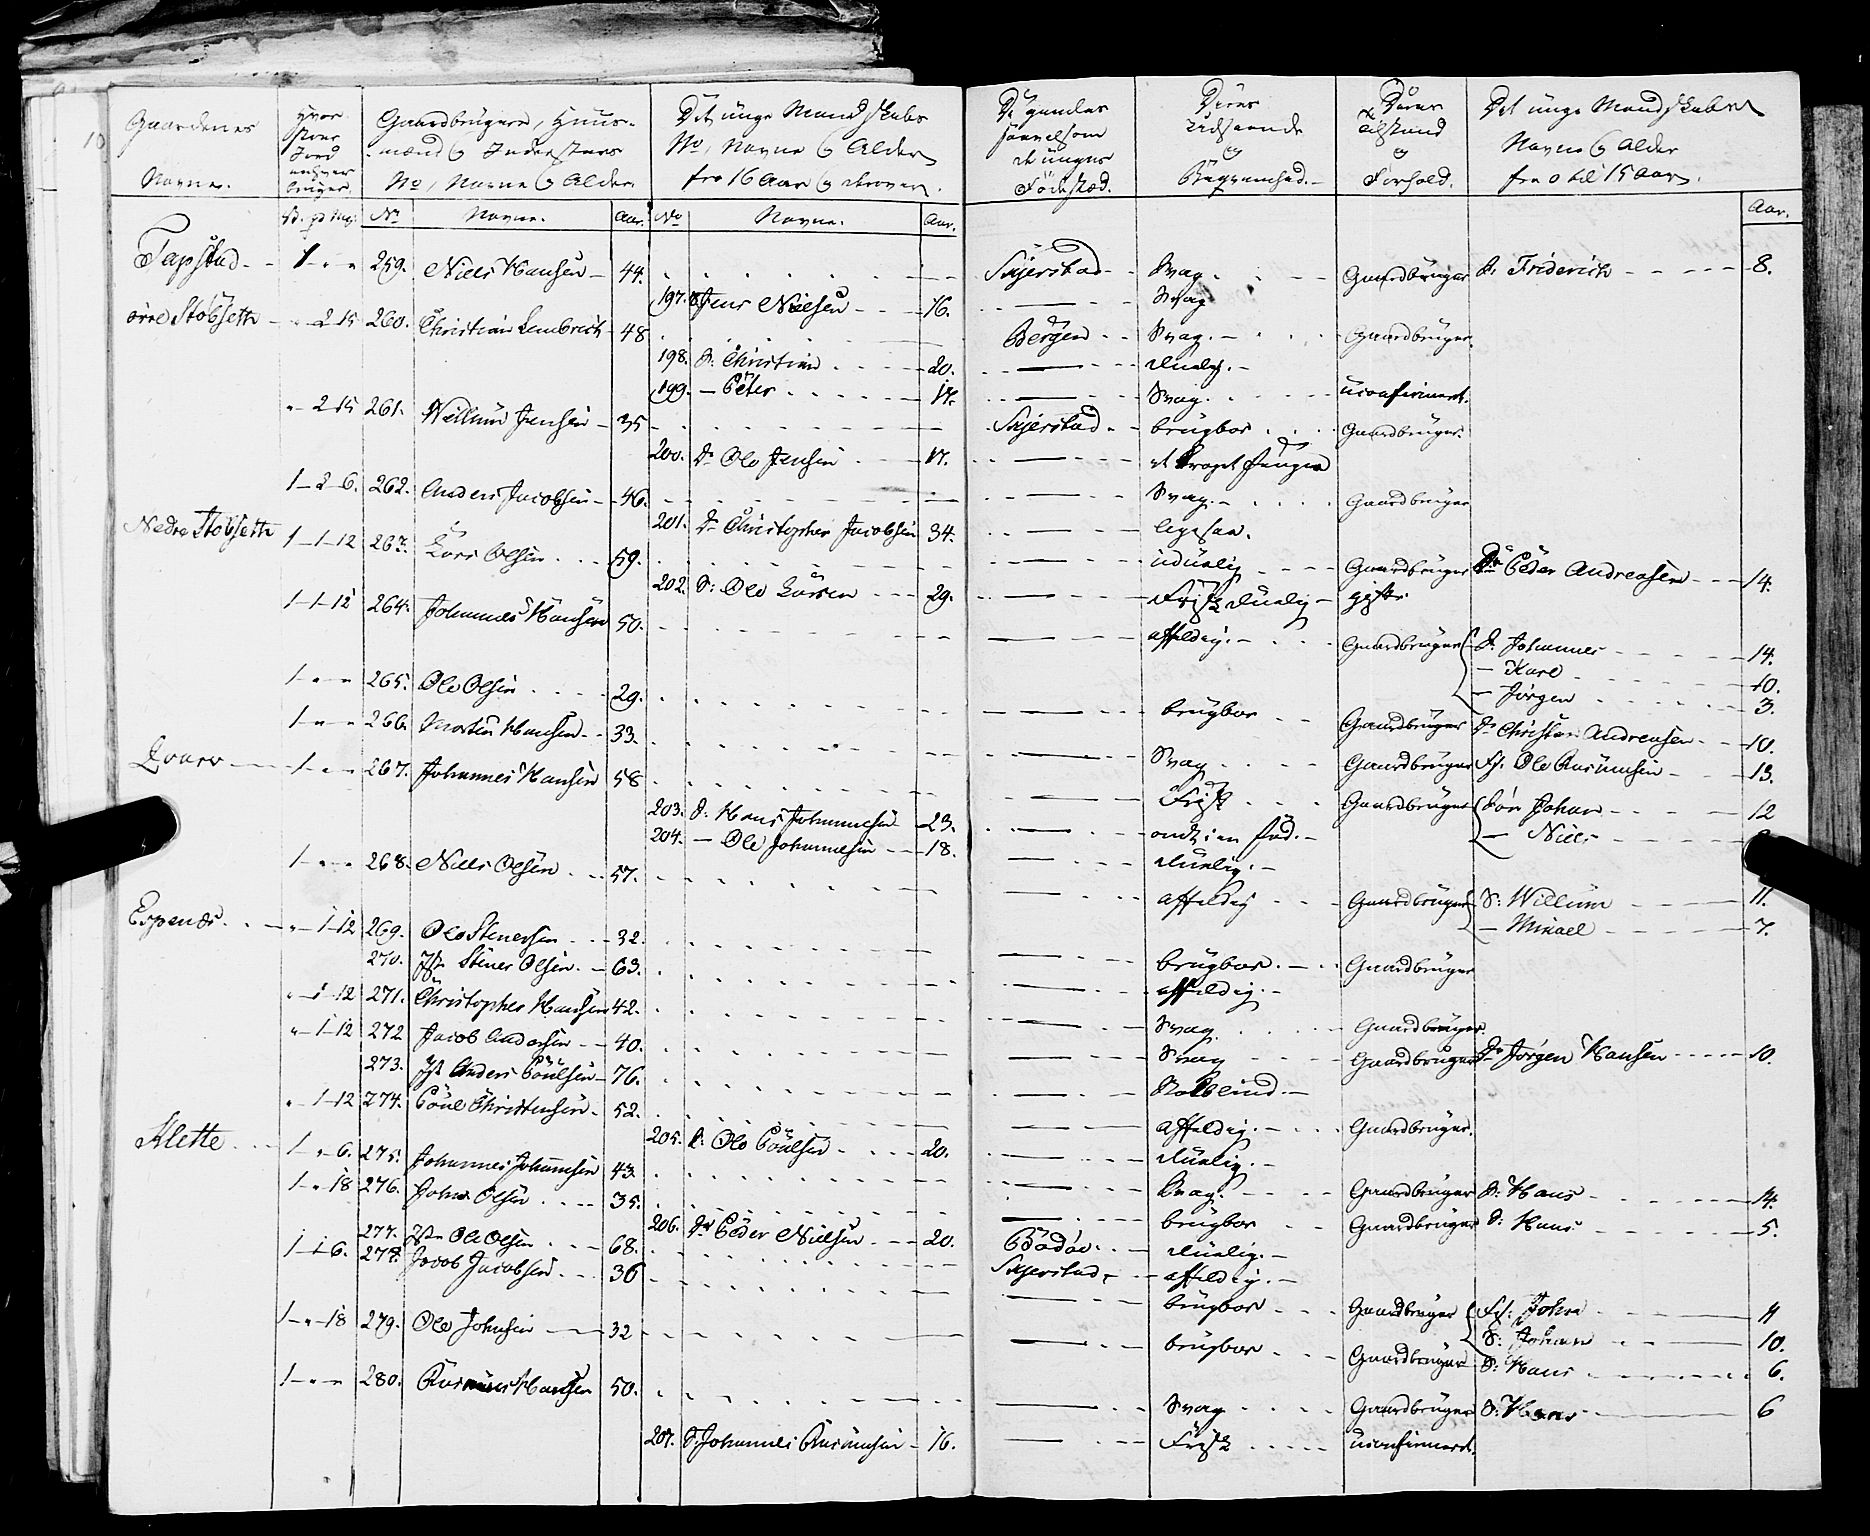 Gaardenes Navne.
Hvor stor Jord enhver bruger.
Gaardbrugere, Huus-mænd og Inderster No, Navne og Alder
Det unge Mandskabs No, Navne og Alder fra 16 Aar og derover.
De gamles saavelsom de unges Fødested.
Deres Udseende og Bequemhed.
Deres Tilstand og Forhold.
Det unge Mandskabs Navne og Alder fra 0 til 15 Aar.
No Navne. Aar. No Navne. Aar. Aar.
Tapstad 1 - " - " 259. Niels Hansen 44. Skjerstad Svag. Gaardbruger S. Friderich 8.
197. S. Jens Nielsen 16. Svag
øvre Stobseth " 2 15 260. Christian Lembrich 48 Bergen Svag. Gaardbruger.
198. S. Christian 20. duelig.
199. — Peter 17. Svag. uconfirmert.
" 2 15 261. Willum Jensen 35 Skjerstad brugbar Gaardbruger.
200. Dr Ole Jensen 17.
1 - 2 - 6. 262. Anders Jacobsen 46. Svag. Gaardbruger
201. Dr Christopher Jacobsen 34. ligesaa.
Nedre Stobseth 1 - 1 - 12 263. Lars Olsen 59. uduelig Gaardbruger Dr Peder Andreasen 14.
202. S. Ole Larsen 29. Frisk duelig gift.
1 - 1 - 12 264. Johannes Hansen 50. affeldig. Gaardbruger S. Johannes 14.
— Karl 10.
— Jørgen 3.
1 - " - " 265. Ole Olsen 29. brugbar Gaardbruger Dr Christian Andreasen 10.
1 - " - " 266. Morten Hansen 33. Svag Gaardbruger Ps. Ole Rasmussen 13.
1 - " - " 267. Johannes Hansen 58 Frisk Gaardbruger Søn Johan 12
— Niels
203. S. Hans Johannesen 23. ondt i en Fod.
204. — Ole Johannesen 18. duelig.
1 - " - " 268. Niels Olsen 57. affeldig Gaardbruger S. Willum 11.
— Mikael 7.
Espenæs " - 1 - 12 269. Ole Stenersen 32. brugbar. Gaardbruger
270. Stener Olsen 63. affeldig.
" - 1 - 12 271. Christopher Hansen 42. Svag Gaardbruger.
" - 1 - 12 272 Jacob Andersen 40. Svag Gaardbruger Dr Jørgen Hansen 10.
273. Anders Poulsen 76. Stokblind.
" - 1 - 12 274. Poul Christensen 52. affeldig. Gaardbruger.
205. S. Ole Poulsen 20. duelig.
Klette 1 - " - 6. 275. Johannes Johannesen 43. Svag. Gaardbruger S. Hans 14.
1 - " - 18 276. John Olsen 35. brugbar Gaardbruger S. Hans 5.
206. Dr Peder Nielsen 20. Bodøe duelig.
277. Ole Olsen 68. Skjerstad affeldig.
1 - 1 - 6. 278. Jacob Jacobsen 36 brugbar Gaardbruger Ps. John 11
S. Johan 10.
1 - " - 18 279. Ole Johnsen 32 brugbar Gaardbruger S. Hans 6.
1 - " - " 280. Rasmus Hansen 50. Svag Gaardbruger S. Hans 6
207. S. Johannes Rasmussen 16. Frisk uconfirmert.